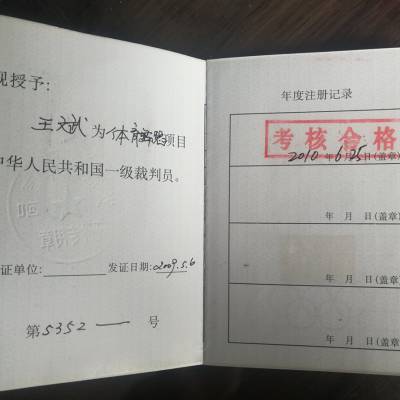 现授予:
王文武 为 体育舞蹈 项目
中华人民共和国一级裁判员。
证单位: 发证日期: 2009.5.6
第 5352 一 号
年度注册记录
考核合格
2010 年 6 月 25 日(盖章)
年 月 日(盖章)
年 月 日(盖章)
年 月 日(盖章